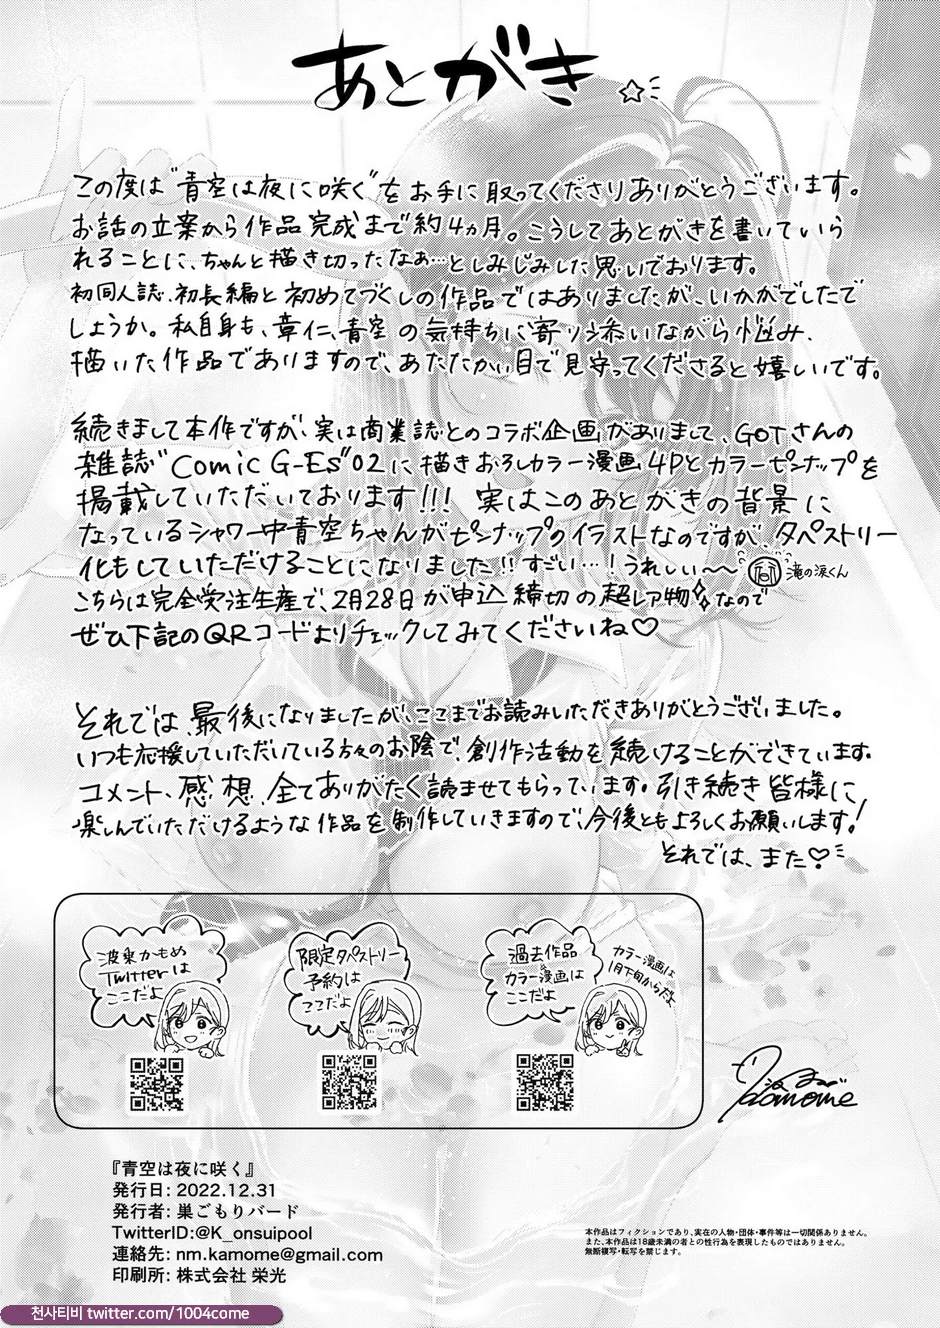 あとがき☆
この度は"青空は夜に咲く"をお手に取ってくださりありがとうございます。
お話の立案から作品完成まで約4ヵ月。こうしてあとがきを書いていら
れることに、ちゃんと描き切ったなぁ…としみじみした思いでおります。
初同人誌、初長編と初めてづくしの作品ではありましたが、いかがでしたで
しょうか。私自身も、章仁、青空の気持ちに寄り添いながら悩み、
描いた作品でありますので、あたたかい目で見守ってくださると嬉しいです。
続きまして本作ですが、実は商業誌とのコラボ企画がありまして、GOTさんの
雑誌"Comic G-Es"02に描きおろしカラー漫画4Pとカラーピンナップを
掲載していただいております!!! 実はこのあとがきの背景に
なっているシャワー中青空ちゃんがピンナップのイラストなのですが、タペストリー
化もしていただけることになりました!!すごい…!うれしい〜〜 滝の涙くん
こちらは完全受注生産で、2月28日が申込締切の超レア物なので
ぜひ下記のQRコードよりチェックしてみてくださいね♡
それでは、最後になりましたが、ここまでお読みいただきありがとうございました。
いつも応援していただいている方々のお陰で、創作活動を続けることができています。
コメント、感想、全てありがたく読ませてもらっています。引き続き皆様に
楽しんでいただけるような作品を制作していきますので、今後ともよろしくお願いします!
それでは、また♡
波東かもめ
Twitterは
ここだよ
限定タペストリー
予約は
ここだよ
過去作品
カラー漫画は
ここだよ
カラー漫画は
1月下旬からだよ
Kamome
『青空は夜に咲く』
発行日: 2022.12.31
発行者: 巣ごもりバード
TwitterID:@K_onsuipool
連絡先: nm.kamome@gmail.com
印刷所: 株式会社 栄光
本作品はフィクションであり、実在の人物・団体・事件等は一切関係ありません。
また、本作品は18歳未満の者との性行為を表現したものではありません。
無断複写・転写を禁じます。
천사티비 twitter.com/1004come